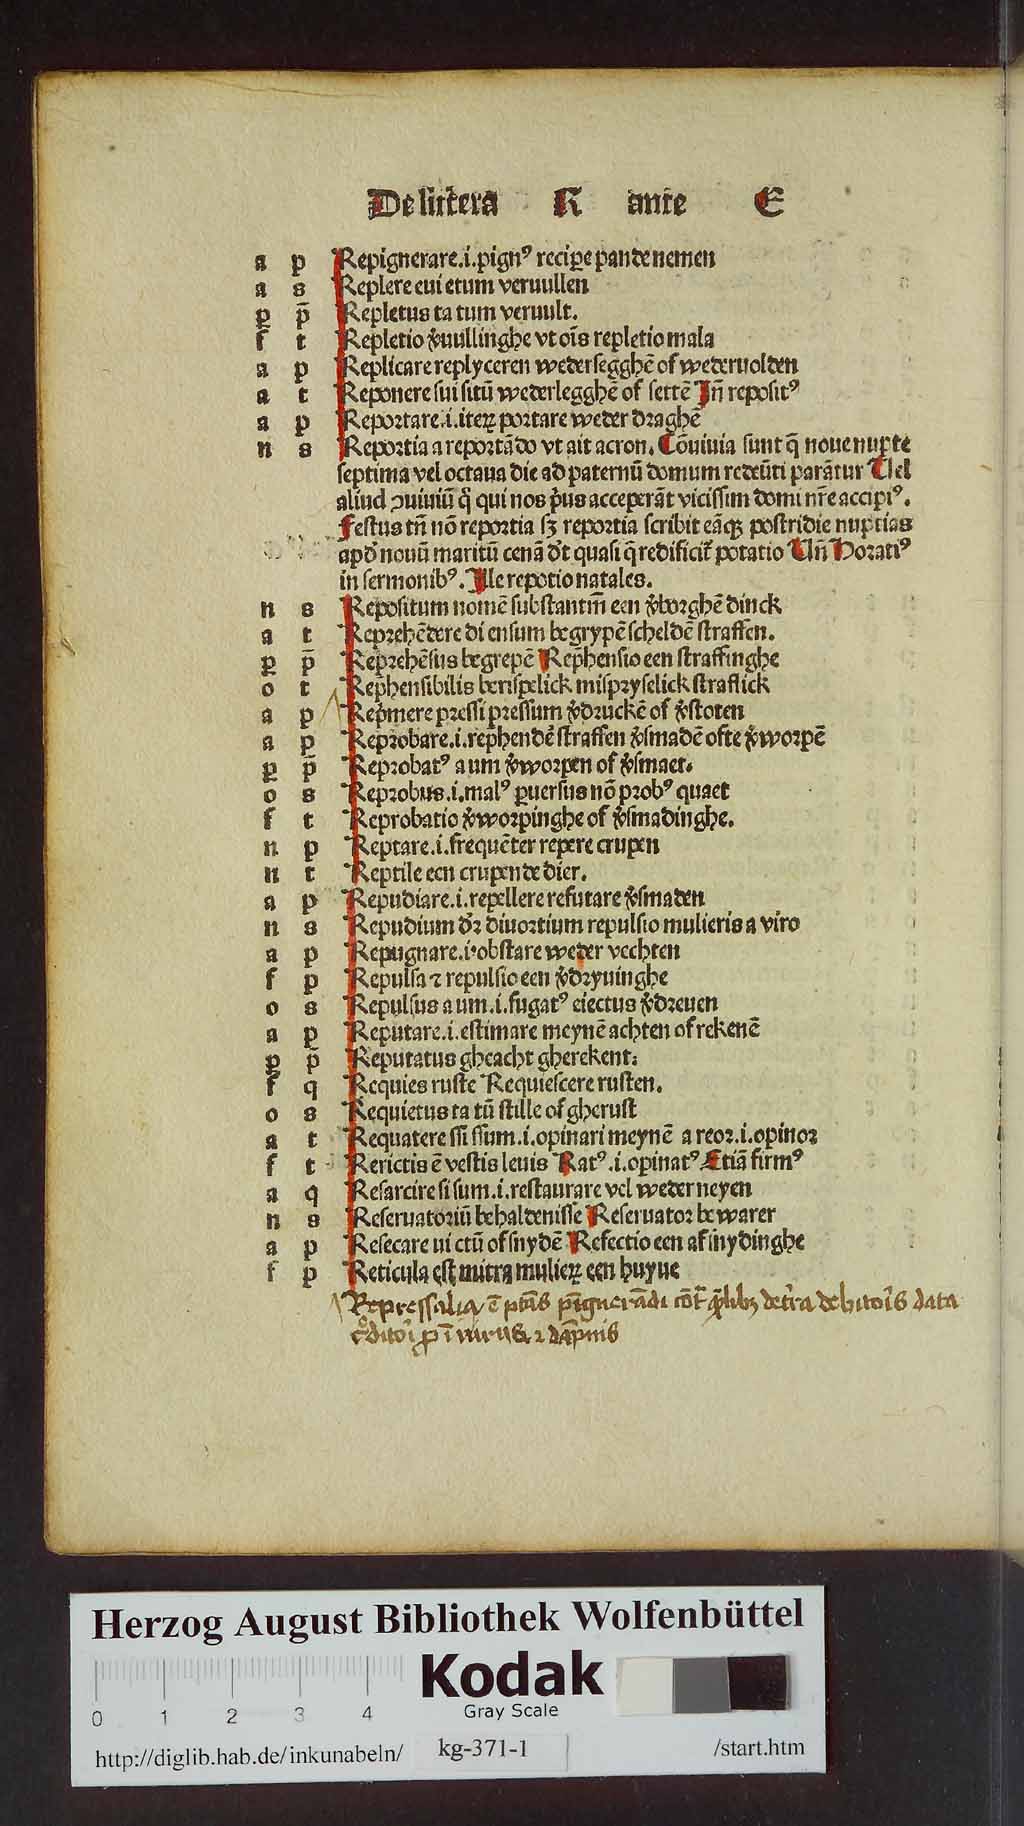 De littera R ante E
a p Repignerare.i.pignꝰ reciꝑe pande nemen
a s Replere eui etum veruullen
ꝑ p̄ Repletus ta tum veruult.
f t Repletio v̾uullinghe vt oīs repletio mala
a p Replicare replyceren wedersegghē of wederuolden
a t Reponere sui sitū wederlegghē of settē Jn̄ repositꝰ
a p Reportare.i.iteꝝ portare weder draghē
n s Reportia a reportādo vt ait acron. Cōuiuia sunt q̄ noue nupte
septima vel octaua die ad paternū domum redeūti parātur Uel
aliud ꝯuiuiū q̄ qui nos p̄us acceperāt vicissim domi nr̄e accipiꝰ.
Festus tn̄ nō reportia sꝫ reportia scribit eāqꝫ postridie nuptias
apd̾ nouū maritū cenā d̾t quasi q̄ redificit̾ potatio Un̄ Horatiꝰ
in sermonibꝰ. Jlle repotio natales.
n s Repositum nomē substantiū een v̾borghē dinck
a t Reprehēdere di ensum begrypē scheldē straffen.
ꝑ p̄ Reprehēsus begrepē Rephensio een straffinghe
o t Rephensibilis berispelick mispryselick straflick
a p Rep̄mere pressi pressum v̾druckē of v̾stoten
a p Reprobare.i.rephendē straffen v̾smadē ofte v̾worpē
ꝑ p̄ Reprobatꝰ a um v̾worpen of v̾smaet.
o s Reprobus.i.malꝰ ꝑuersus nō probꝰ quaet
f t Reprobatio v̾worpinghe of v̾smadinghe.
n p Reptare.i.frequēter repere crupen
n t Reptile een crupende dier.
a p Repudiare.i.repellere refutare v̾smaden
n s Repudium d̾r diuortium repulsio mulieris a viro
a p Repugnare.i.obstare weder vechten
f p Repulsa ⁊ repulsio een v̾dryuinghe
o s Repulsus a um.i.fugatꝰ eiectus v̾dreuen
a p Reputare.i.estimare meynē achten of rekenē
ꝑ p̄ Reputatus gheacht gherekent:
f q Requies ruste Requiescere rusten.
o s Requietus ta tū stille of gherust
a t Requatere ssi ssum.i.opinari meynē a reor.i.opinor
f t Rerictis ē vestis leuis Ratꝰ.i.opinatꝰ Etiā firmꝰ
a q Resarcire si sum.i.restaurare vel weder neyen
n s Reseruatoriū behaldenisse Reseruator bewarer
a p Resecare ui ctū of snydē Resectio een afsnydinghe
f p Reticula est mitra mulieꝝ een huyue
Repressalia ē ptās pīgnerādi cōt̾ q̄libꝫ de t̾ra debitor̄is data
c̾ditori ꝓ iniuriis ⁊ dāpnis
Herzog August Bibliothek Wolfenbüttel
Kodak
Gray Scale
0 1 2 3 4
http://diglib.hab.de/inkunabeln/ kg-371-1 /start.htm